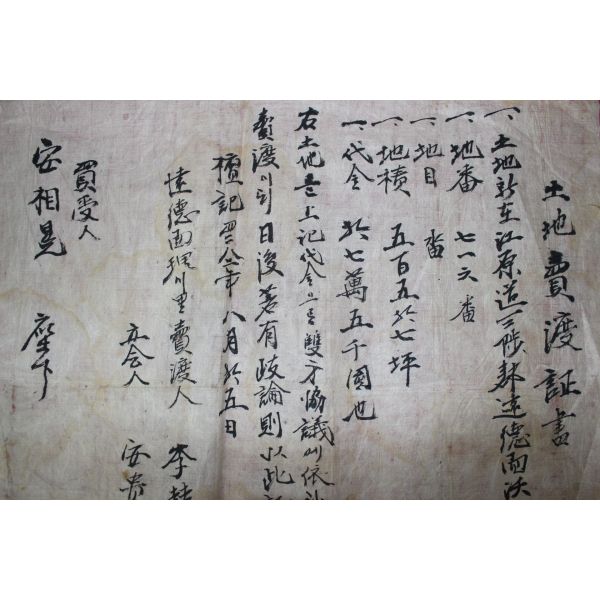 土地賣渡証書
一、土地所在江原道三陟郡遠德面沃
一、地番 七一六番
一、地目 畓
一、地積 五百五拾七坪
一、代金 拾七萬五千圜也
右土地를上記代金으로雙方協議에依
賣渡이되日後若有歧論則以此
檀記四二八八年八月拾五日
遠德面 賣渡人 李
立会人 安
買受人
安相晃 座下